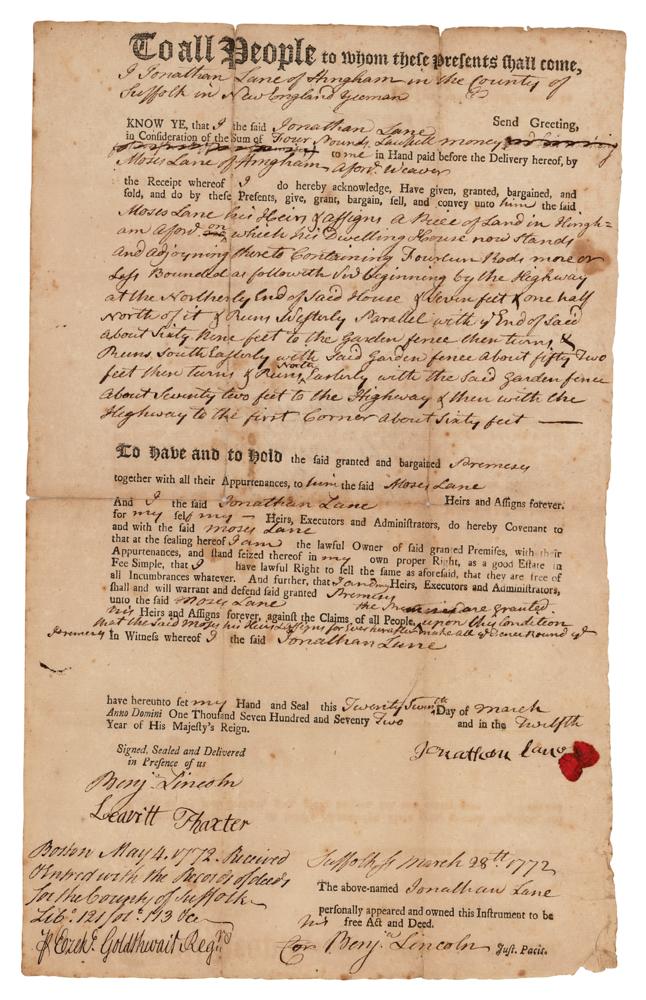 To all People to whom these Presents shall come,
I Jonathan Lane of Hingham in the County of
Suffolk in New England Yeoman
Send Greeting,
KNOW YE, that I the said Jonathan Lane
in Consideration of the Sum of Four Pounds Lawfull money
to me in Hand paid before the Delivery hereof, by
Moses Lane of Hingham afore.d Weaver
the Receipt whereof I do hereby acknowledge, Have given, granted, bargained, and
sold, and do by these Presents, give, grant, bargain, sell, and convey unto him the said
Moses Lane his Heirs & assigns A Piece of Land in Hingh=
am afore.d on which his Dwelling House now Stands
and adjoyning thereto Containing Fourteen Rods more or
Less Bounded as followeth Viz beginning by the Highway
at the Northerly End of Said House & Seven feet & one half
North of it & Runs Westerly Parallel with ye End of Said
about Sixty Nine feet to the Garden fence then turns &
Runs South Easterly with Said Garden fence about fifty Two
feet then turns & Runs North Easterly with the Said Garden fence
about Seventy two feet to the Highway & then with the
Highway to the first Corner about Sixty feet —
To Have and to Hold the said granted and bargained Premeses
together with all their Appurtenances, to him the said Moses Lane
Heirs and Assigns forever.
And I the said Jonathan Lane
for my self my — Heirs, Executors and Administrators, do hereby Covenant to
and with the said Moses Lane
that at the sealing hereof I am the lawful Owner of said granted Premises, with their
Appurtenances, and stand seized thereof in my own proper Right, as a good Estate in
Fee Simple, that I have lawful Right to sell the same as aforesaid, that they are free of
all Incumbrances whatever. And further, that I and my Heirs, Executors and Administrators,
shall and will warrant and defend said granted Premeses
unto the said Moses Lane the are granted
his Heirs and Assigns forever, against the Claims, of all People, upon this Condition
that the Said Moses his Heirs & assigns for Ever hereafter make all ye Fence Round ye
Premeses In Witness whereof I the said Jonathan Lane
have hereunto set my Hand and Seal this Twenty Day of March
Anno Domini One Thousand Seven Hundred and Seventy Two and in the Twelfth
Year of His Majesty's Reign.
Signed, Sealed and Delivered
in Presence of us
Jonathan Lane
Benja Lincoln
Leavitt Thaxter
Boston May 4. 1772. Received
& Entred with the Records of deeds
for the County of Suffolk
Libo. 121 folo. 113 &c
℔ Ezekl. Goldthwait Regrd
Suffolk ss March 28th 1772
The above-named Jonathan Lane
personally appeared and owned this Instrument to be
his free Act and Deed.
Cor Benja Lincoln Just. Pacis.